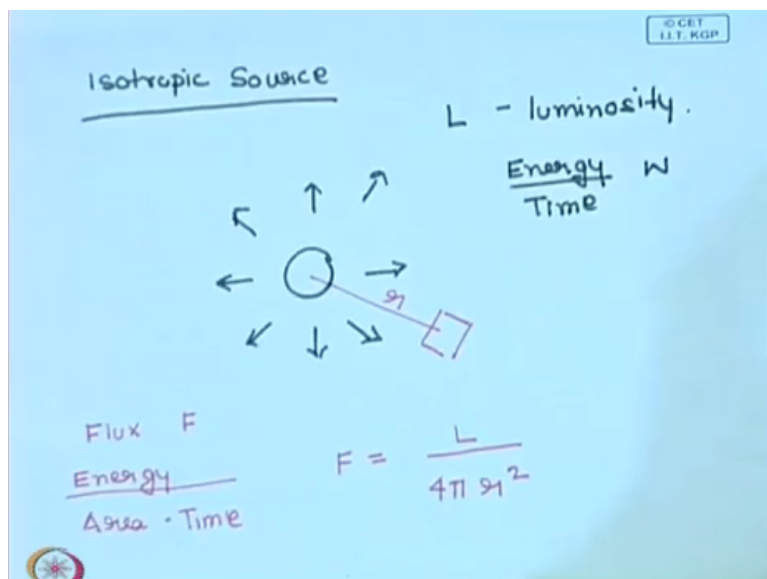 © CET
I.I.T. KGP
Isotropic Source
L - luminosity.
Energy W
Time
r
Flux F
Energy
Area · Time
F = L
4π r²